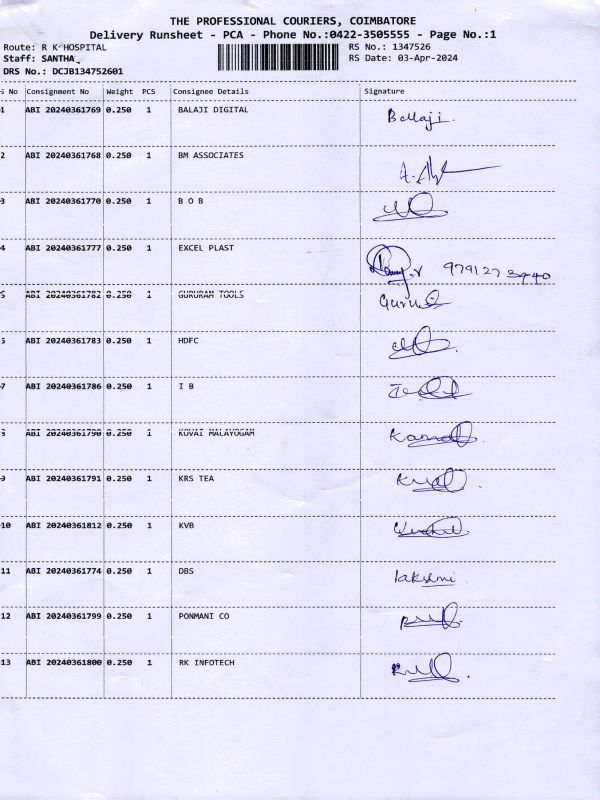 THE PROFESSIONAL COURIERS, COIMBATORE
Delivery Runsheet - PCA - Phone No.:0422-3505555 - Page No.:1
Route: R K HOSPITAL RS No.: 1347526
Staff: SANTHA RS Date: 03-Apr-2024
DRS No.: DCJB134752601
S No Consignment No Weight PCS Consignee Details Signature
1 ABI 20240361769 0.250 1 BALAJI DIGITAL Ballaji.
2 ABI 20240361768 0.250 1 BM ASSOCIATES
3 ABI 20240361770 0.250 1 B O B
4 ABI 20240361777 0.250 1 EXCEL PLAST
5 ABI 20240361782 0.250 1 GURURAM TOOLS
6 ABI 20240361783 0.250 1 HDFC
7 ABI 20240361786 0.250 1 I B
8 ABI 20240361790 0.250 1 KOVAI MALAYOGAM
9 ABI 20240361791 0.250 1 KRS TEA
10 ABI 20240361812 0.250 1 KVB
11 ABI 20240361774 0.250 1 DBS lakshmi
12 ABI 20240361799 0.250 1 PONMANI CO
13 ABI 20240361800 0.250 1 RK INFOTECH